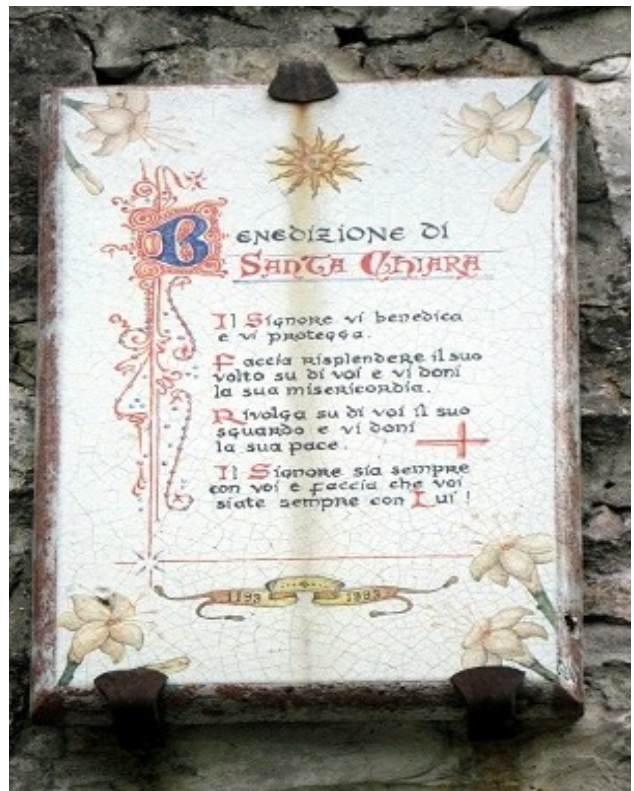 BENEDIZIONE DI
SANTA CHIARA
Il Signore vi benedica
e vi protegga.
Faccia risplendere il suo
volto su di voi e vi doni
la sua misericordia.
Rivolga su di voi il suo
sguardo e vi doni
la sua pace.
Il Signore sia sempre
con voi e faccia che voi
siate sempre con Lui !
1193 1993